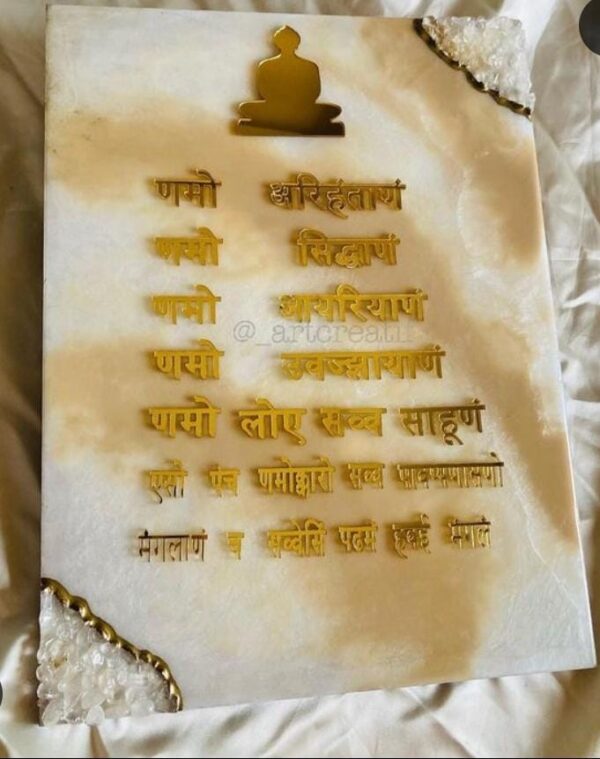 णमो अरिहंताणं
णमो सिद्धाणं
णमो आयरियाणं
@_artcreatif
णमो उवज्झायाणं
णमो लोए सव्व साहूणं
एसो पंच णमोक्कारो सव्व पावप्पणासणो
मंगलाणं च सव्वेसिं पढमं हवई मंगलं